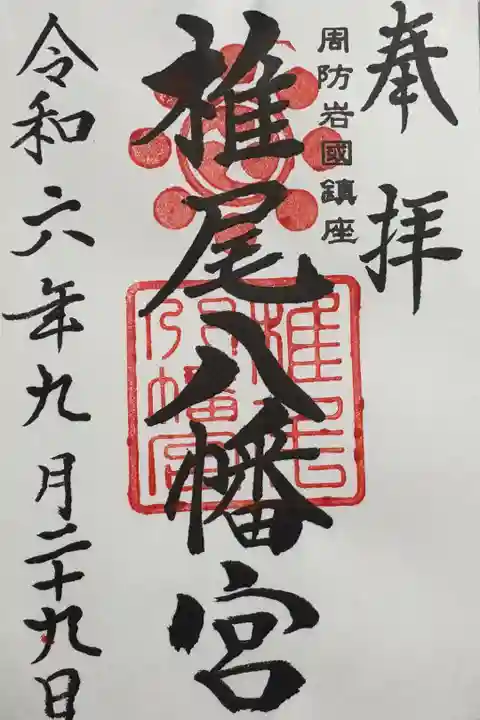 奉拝
周防岩國鎮座
椎尾八幡宮
椎尾八幡宮
令和六年九月二十九日